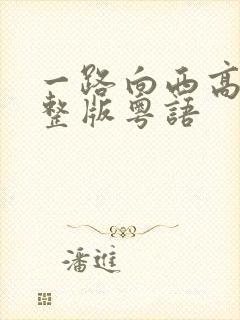 一路向西高
整版粵語
潘進